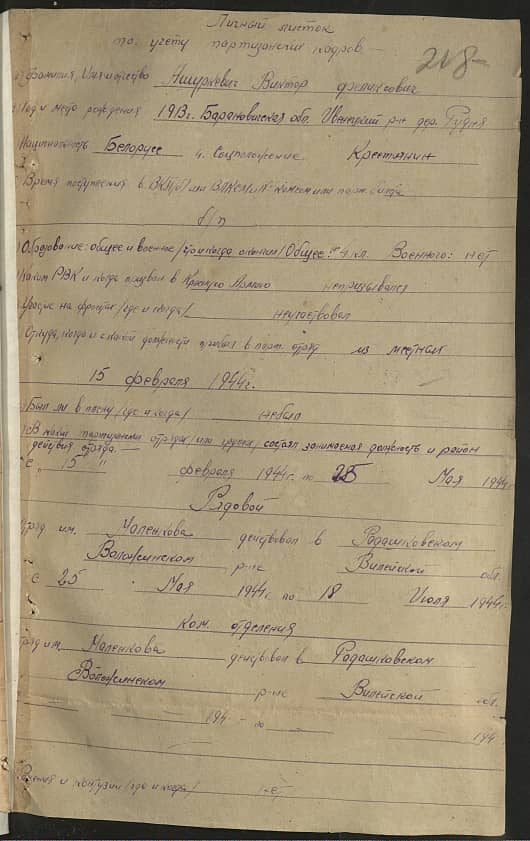 Личный листок
по учету партизанских кадров —
218
Фамилия, Имя и отчество Ашуркевич Виктор Феликсович
Год и место рождения 1913г. Барановичская обл. Ивенецкий р-н дер. Рудня
Национальность Белорусс 4. Соцположение. Крестьянин
Время поступления в ВКП/б/ или ВЛКСМ
б/п
Образование: общее и военное /что и когда окончил/ Общее: 4 кл. Военного: нет
Каким РВК и когда призван в Красную Армию непризывался
Участие на фронте /где и когда/ неучаствовал
Откуда, когда и с какой должности прибыл в парт. отряд из местных
15 февраля 1944г.
Был ли в плену /где и когда/ небыл
В каких партизанских отрядах /или группах/ состоял занимаемая должность и район
действия отряда. —
с " 15 " февраля 1944г. по 25 Мая 1944г.
Рядовой
Отряд им. Маленкова действовал в Радашковском
Воложинском р-не Вилейской обл.
с 25 Мая 1944г. по 18 Июля 1944г.
Ком. отделения
Отряд им. Маленкова действовал в Радашковском
Воложинском р-не Вилейской обл.
194 - по 194
Ранения и контузии /где и когда/ нет